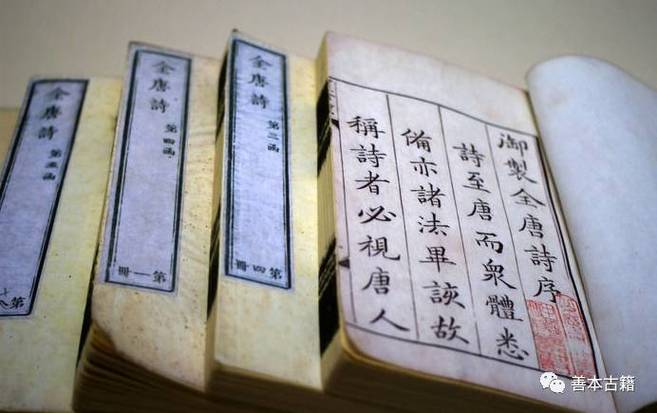 御製全唐詩序
詩至唐而衆體悉
俻亦諸法畢該故
稱詩者必視唐人
全唐詩
第二函
第四冊
全唐詩
第四函
第一冊
全唐詩
第五函
第
善本古籍